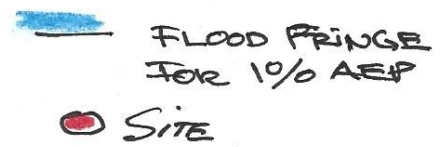 FLOOD FRINGE
FOR 1% AEP
SITE